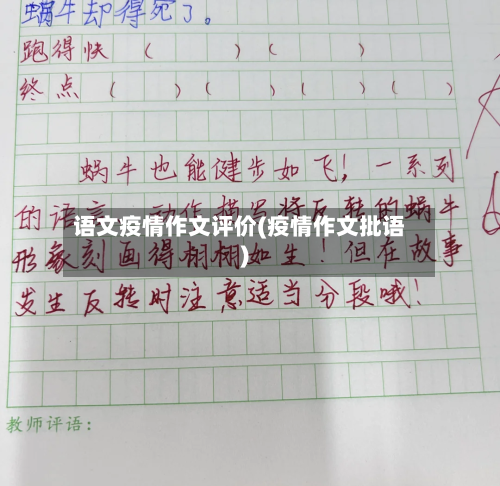 蜗牛却得死了。
跑得快 ( ) ( )
终点 ( ) ( ) ( ) ( )
蜗牛也能健步如飞！一系列
的语言、动作描写将反转的蜗牛
语文疫情作文评价(疫情作文批语
)
形象刻画得栩栩如生！但在故事
发生反转时注意适当分段哦！
教师评语：